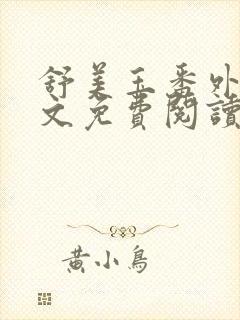 舒美玉番外
文免費閱讀
黃小鳥